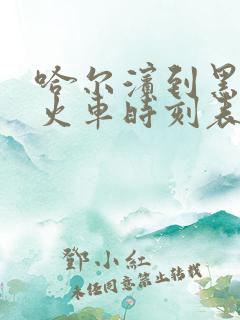 哈尔滨到黑
火车时刻表
鄧小紅
未经同意禁止转载